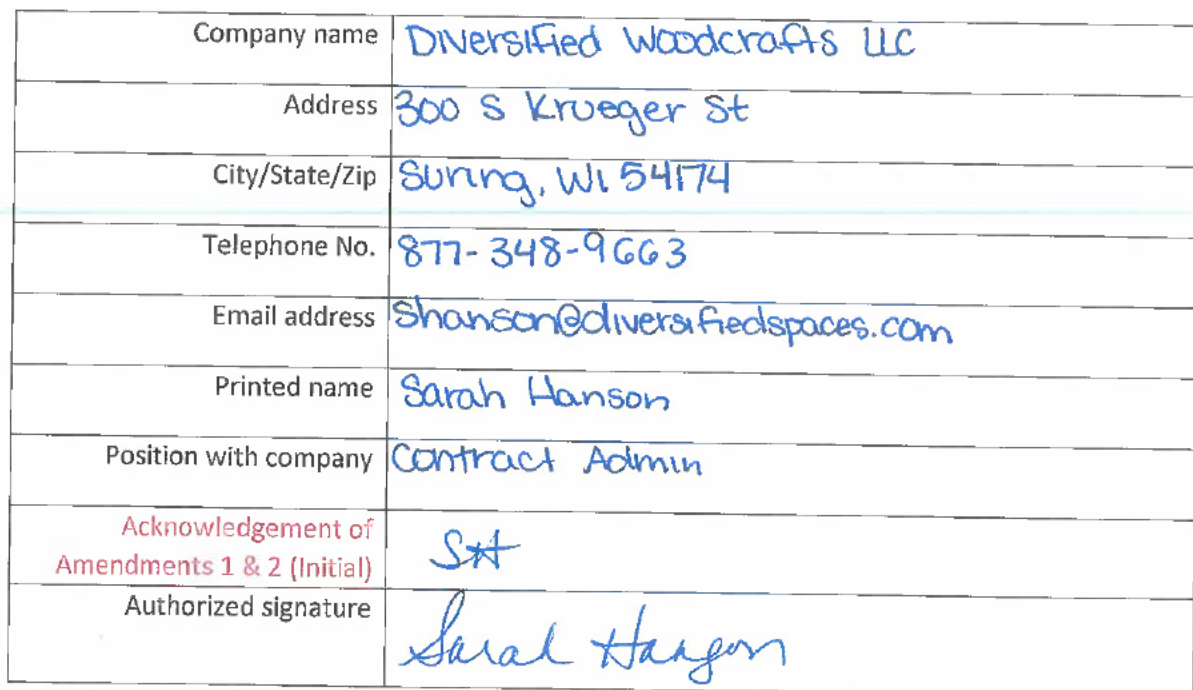 Company name Diversified Woodcrafts LLC
Address 300 S Krueger St
City/State/Zip Suring, WI 54174
Telephone No. 877-348-9663
Email address Shanson@diversifiedspaces.com
Printed name Sarah Hanson
Position with company Contract Admin
Acknowledgement of
Amendments 1 & 2 (Initial) SH
Authorized signature Sarah Hanson